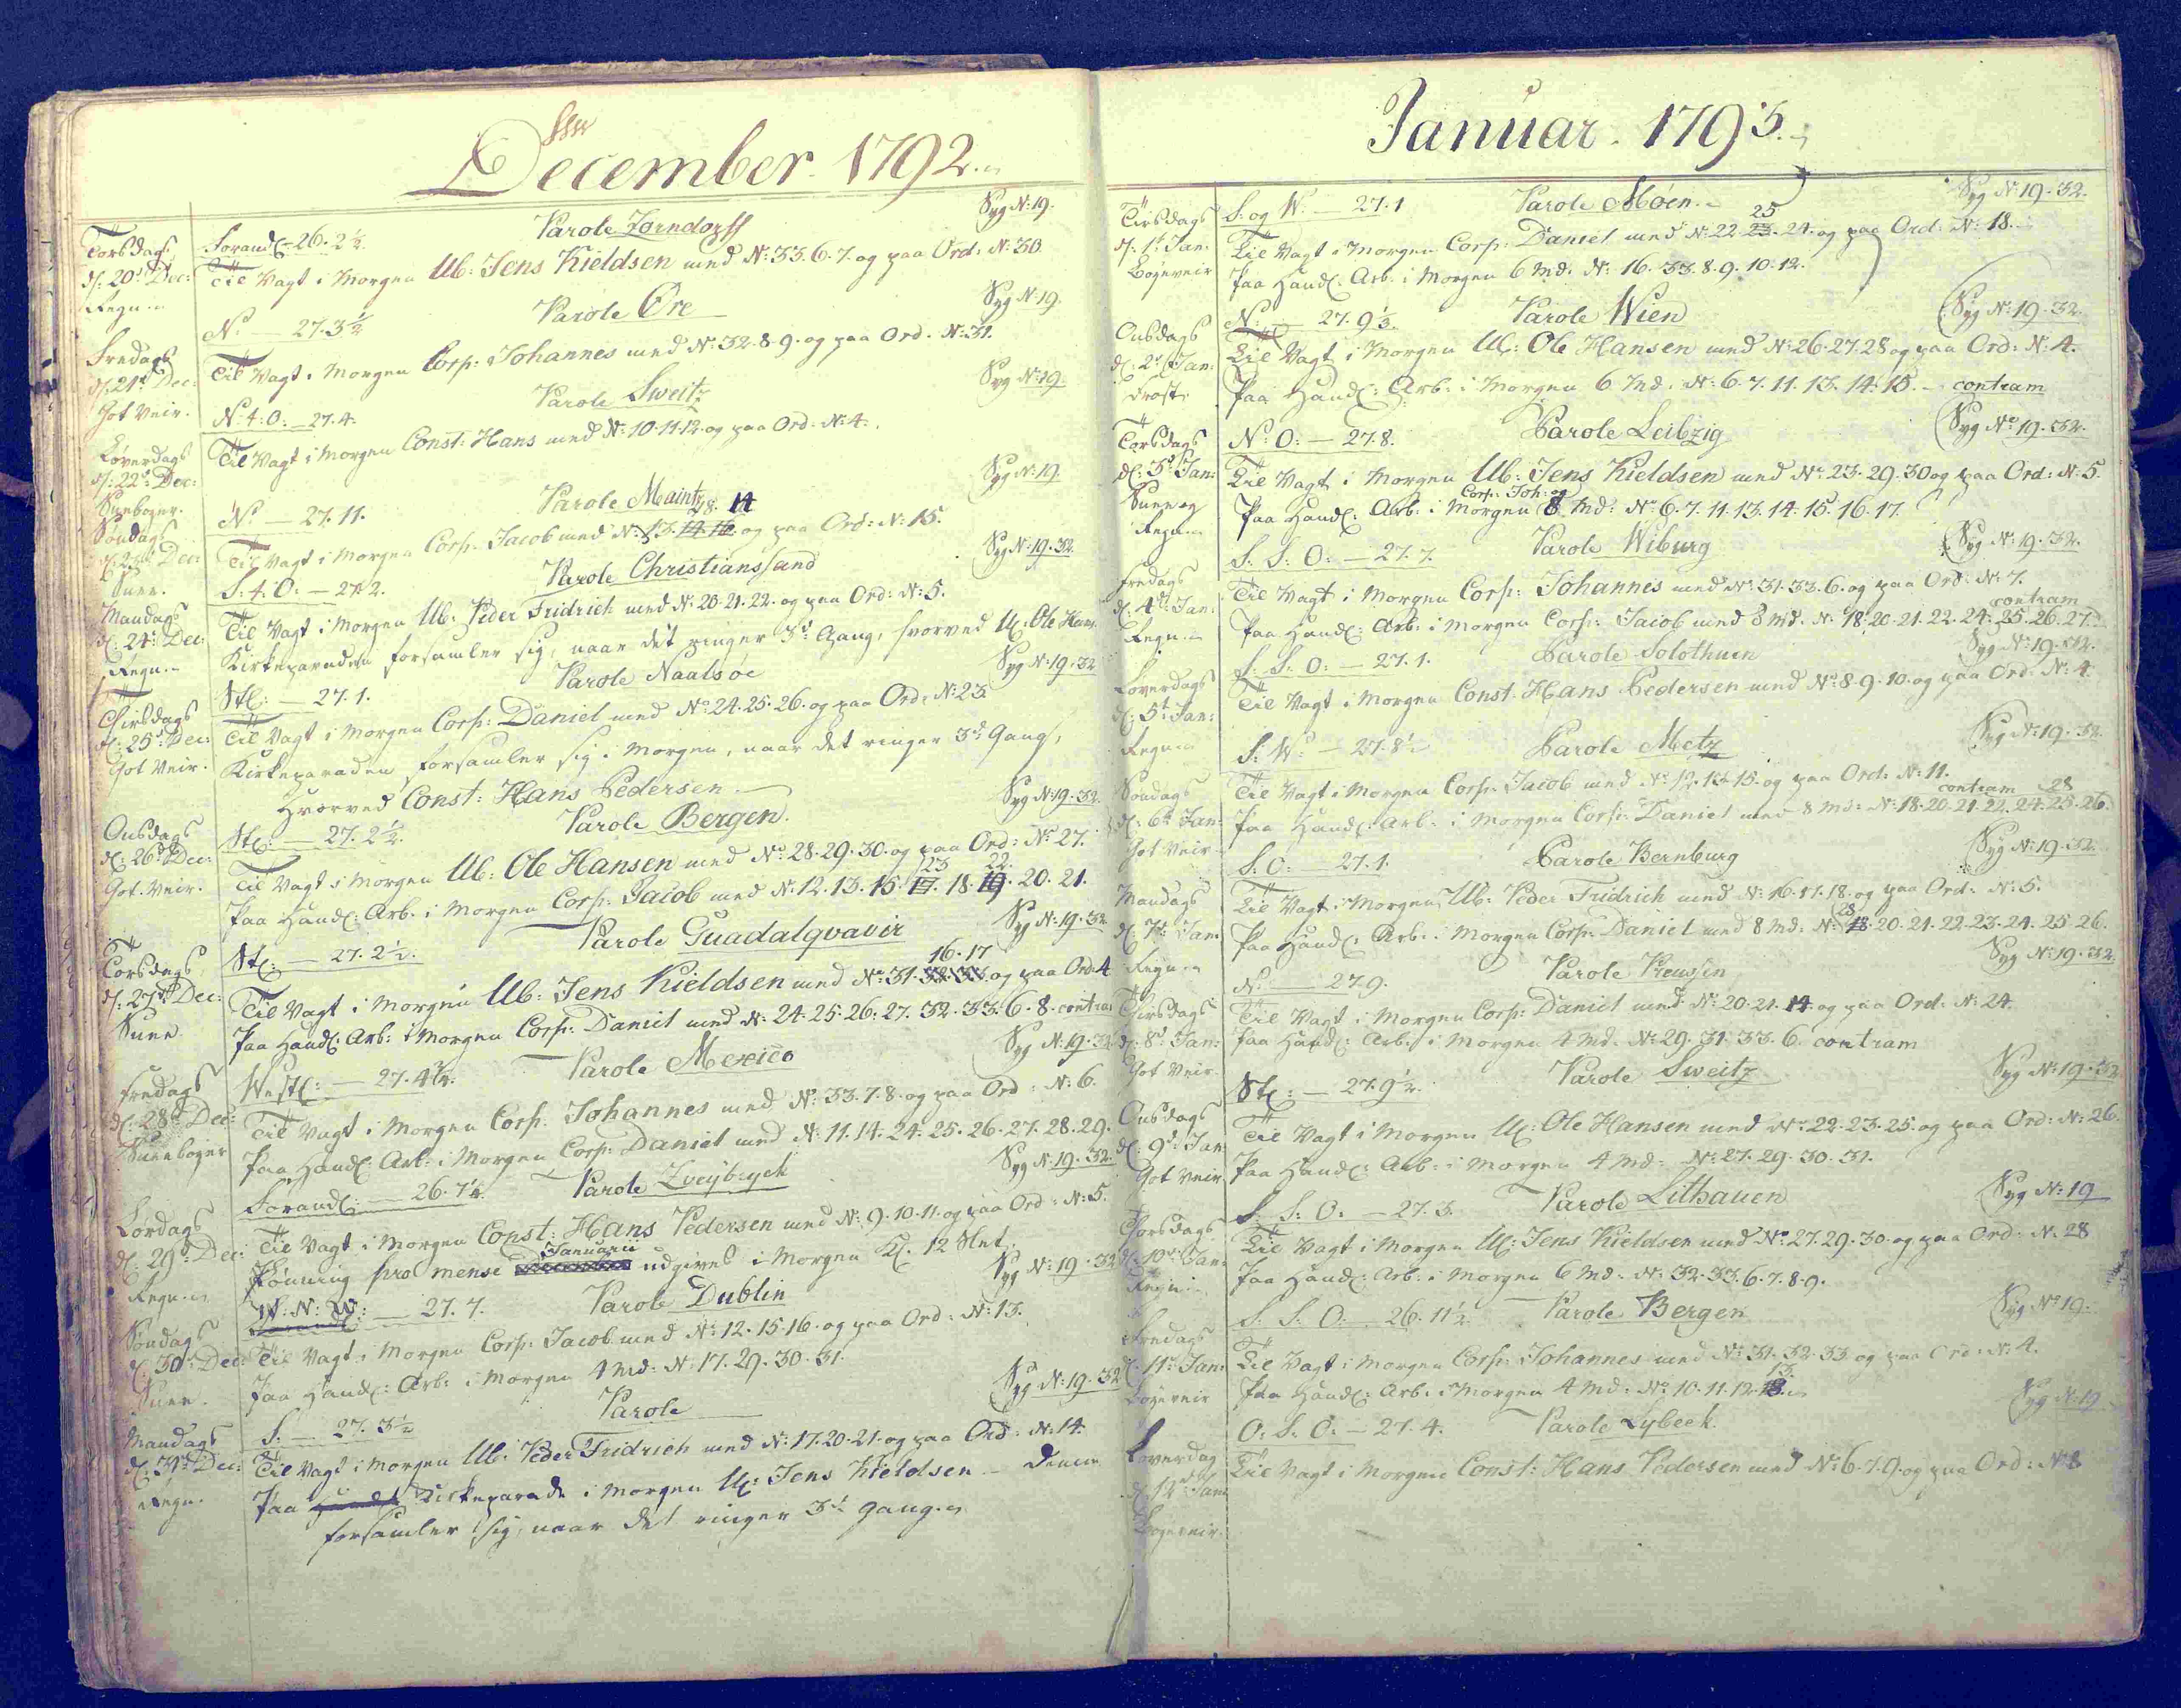 December 1792.
Torsdags
d: 20de Dec:
Regn.
Forandl: 26. 2½.
Parole Zorndorff
Syg N: 19.
Til Vagt i Morgen Ub: Jens Kieldsen med N: 33. 6. 7. og paa Ord: N: 30
Fredags
d: 21de Dec:
Got Veir.
N. — 27. 3½
Parole Øre
Syg N: 19.
Til Vagt i Morgen Corp: Johannes med N: 32. 8. 9. og paa Ord. N: 31.
Løverdags
d: 22de Dec:
Sneeboyer.
N. 4: O: — 27. 4.
Parole Sweitz
Syg N: 19.
Til Vagt i Morgen Const: Hans med N: 10. 11. 12. og paa Ord: N: 4.
Søndags
d: 23de Dec:
Snee.
N. — 27. 11.
Parole Maintz
Syg N: 19.
28. 14
Til Vagt i Morgen Corp: Jacob med N: 13. 14. 16. og paa Ord: N: 15.
Mandags
d: 24de Dec:
Regn.
S: 4. O: — 27. 2.
Parole Christianssand
Syg N: 19. 32.
Til Vagt i Morgen Ub: Peder Fridrich med N: 20. 21. 22. og paa Ord: N: 5.
Kirkeparaden forsamler sig, naar det ringer 3de Gang, hvorved U: Ole Hans.
Thirsdags
d: 25de Dec:
Got Veir.
Stl: — 27. 1.
Parole Naalsøe
Syg N: 19. 32
Til Vagt i Morgen Corp: Daniel med No 24. 25. 26. og paa Ord: N: 23
Kirkeparaden forsamler sig i Morgen, naar det ringer 3de Gang,
hvorved Const: Hans Pedersen
Onsdags
d: 26de Dec:
Got Veir.
Stl: — 27. 2½.
Parole Bergen.
Syg N: 19. 32.
Til Vagt i Morgen Ub: Ole Hansen med No 28. 29. 30. og paa Ord: No 27.
23 22.
Paa Handl: Arb. i Morgen Corp: Jacob med N. 12. 13. 15. 17. 18. 19. 20. 21.
Torsdags
d: 27de Dec:
Snee
Stl: — 27. 2½.
Parole Guadalqvavir
Syg N: 19. 32
16. 17
Til Vagt i Morgen Ub: Jens Kieldsen med No 31. 32. 33. og paa Ord: 4
Paa Handl: Arb: i Morgen Corp: Daniel med N. 24. 25. 26. 27. 32. 33. 6. 8. contra
Fredags
d: 28de Dec:
Sneeboyer
Westl: — 27. 4½.
Parole Mexico
Syg N: 19. 32
Til Vagt i Morgen Corp: Johannes med N: 33. 7. 8. og paa Ord: N: 6.
Paa Handl: Arb: i Morgen Corp: Daniel med N: 11. 14. 24. 25. 26. 27. 28. 29.
Lørdags
d: 29de Dec:
Regn.
Forandl: — 26. 7½.
Parole Zveybryck
Syg N: 19. 32.
Til Vagt i Morgen Const: Hans Pedersen med N: 9. 10. 11. og paa Ord: N: 5.
Januarii
Lønning pro mense udgives i Morgen Kl. 12 Slet.
Søndags
d: 30de Dec:
Snee.
W: N: W: — 27. 7.
Parole Dublin
Syg N: 19. 32
Til Vagt i Morgen Corp: Jacob med N: 12. 15. 16. og paa Ord: N: 13.
Paa Handl: Arb: i Morgen 4 Md: N: 17. 29. 30. 31.
Mandags
d: 31te Dec:
Regn.
S. — 27. 3½
Parole
Syg N: 19. 32
Til Vagt i Morgen Ub: Peder Fridrich med N: 17. 20. 21. og paa Ord: N: 14.
Paa Handl Kirkeparade i Morgen U: Jens Kieldsen — denne
forsamler sig, naar det ringer 3de Gang.
Januar. 1793.
Tirsdags
d: 1te Jan:
Boyeveir
S: og W: — 27. 1
Parole Møen.
Syg N: 19. 32.
25
Til Vagt i Morgen Corp: Daniel med N: 22. 23. 24. og paa Ord: N: 18.
Paa Handl: Arb. i Morgen 6 Md. N: 16. 33. 8. 9. 10. 12.
Onsdags
d: 2de Jan:
Frost.
N. — 27. 9½.
Parole Wien
Syg N: 19. 32.
Til Vagt i Morgen U: Ole Hansen med N: 26. 27. 28 og paa Ord: N: 4.
Paa Handl: Arb: i Morgen 6 Md. N: 6. 7. 11. 13. 14. 15. — contram
Torsdags
d: 3de Jan:
Snee og
Regn.
N: O: — 27. 8.
Parole Leibzig
Syg No 19. 32.
Til Vagt i Morgen Ub: Jens Kieldsen med No 23. 29. 30 og paa Ord: N: 5.
Corp: Joh: og
Paa Handl: Arb: i Morgen 8 Md: No 6. 7. 11. 13. 14. 15. 16. 17.
Fredags
d: 4de Jan:
Regn.
S. S: O: — 27. 7.
Parole Wiburg
Syg N: 19. 32.
Til Vagt i Morgen Corp: Johannes med N: 31. 33. 6. og paa Ord: N: 7.
contram
Paa Handl: Arb: i Morgen Corp: Jacob med 8 Md. N. 18. 20. 21. 22. 24. 25. 26. 27.
Løverdags
d: 5te Jan:
Regn.
S. S: O: — 27. 1.
Parole Solothuen
Syg N: 19. 32.
Til Vagt i Morgen Const: Hans Pedersen med No 8. 9. 10. og paa Ord. N: 4
Søndags
d: 6te Jan:
Got Veir
S: W: — 27. 8½
Parole Metz
Syg N: 19. 32.
Til Vagt i Morgen Corp: Jacob med No 12. 13. 15. og paa Ord: N: 11.
contram 28
Paa Handl: Arb: i Morgen Corp: Daniel med 8 Md: N: 18. 20. 21. 22. 24. 25. 26
Mandags
d: 7de Jan:
Regn.
S: O: — 27. 1.
Parole Bernburg
Syg N: 19. 32
Til Vagt i Morgen Ub: Peder Fridrich med N: 16. 17. 18. og paa Ord: N: 5.
28
Paa Handl: Arb: i Morgen Corp: Daniel med 8 Md: N: 18. 20. 21. 22. 23. 24. 25. 26.
Thirsdags
d: 8de Jan:
Got Veir
N. — 27. 9.
Parole Preussen
Syg N: 19. 32.
Til Vagt i Morgen Corp: Daniel med N: 20. 21. 14. og paa Ord. N: 24.
Paa Handl: Arb: i Morgen 4 Md. N: 29. 31. 33. 6. contram
Onsdags
d: 9de Jan:
Got Veir
Stl: — 27. 9½.
Parole Sweitz
Syg N: 19. 32
Til Vagt i Morgen U: Ole Hansen med No 22. 23. 25. og paa Ord: N: 26.
Paa Handl: Arb: i Morgen 4 Md: No 27. 29. 30. 31.
Thorsdags
d: 10de Jan:
Regn.
S. S: O: — 27. 3.
Parole Lithauen
Syg N: 19
Til Vagt i Morgen U: Jens Kieldsen med No 27. 29. 30. og paa Ord: N. 28
Paa Handl: Arb: i Morgen 6 Md: N: 32. 33. 6. 7. 8. 9.
Fredags
d: 11te Jan:
Boyeveir
S. S: O: — 26. 11½
Parole Bergen
Syg No 19.
Til Vagt i Morgen Corp: Johannes med N: 31. 32. 33 og paa Ord: N: 4.
13.
Paa Handl: Arb. i Morgen 4 Md: No 10. 11. 12.
Løverdag
d: 12te Jan:
Boyeveir.
O. S. O: — 27. 4.
Parole Lybeck.
Syg N: 19
Til Vagt i Morgen Const: Hans Pedersen med N: 6. 7. 9. og paa Ord: N: 8